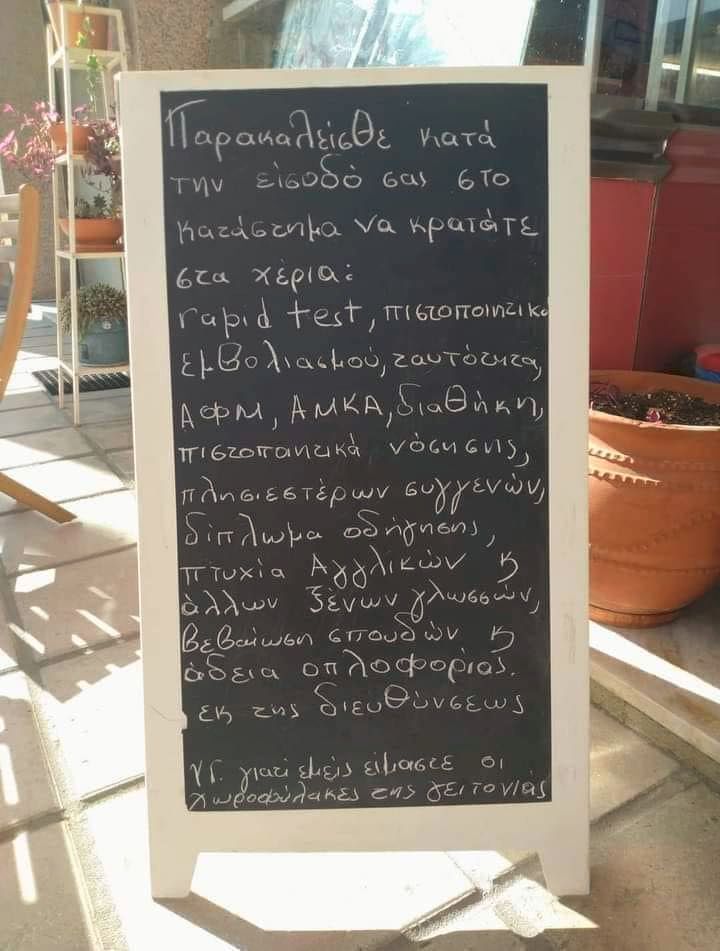 Παρακαλείσθε κατά
την είσοδό σας στο
κατάστημα να κρατάτε
στα χέρια:
rapid test, πιστοποιητικό
εμβολιασμού, ταυτότητα,
ΑΦΜ, ΑΜΚΑ, διαθήκη,
πιστοποιητικά νόσησης,
πλησιεστέρων συγγενών,
δίπλωμα οδήγησης,
πτυχία Αγγλικών ϗ
άλλων ξένων γλωσσών,
βεβαίωση σπουδών ϗ
άδεια οπλοφορίας.
εκ της διευθύνσεως
Υ Γ. γιατί εμείς είμαστε οι
χωροφύλακες της γειτονιάς